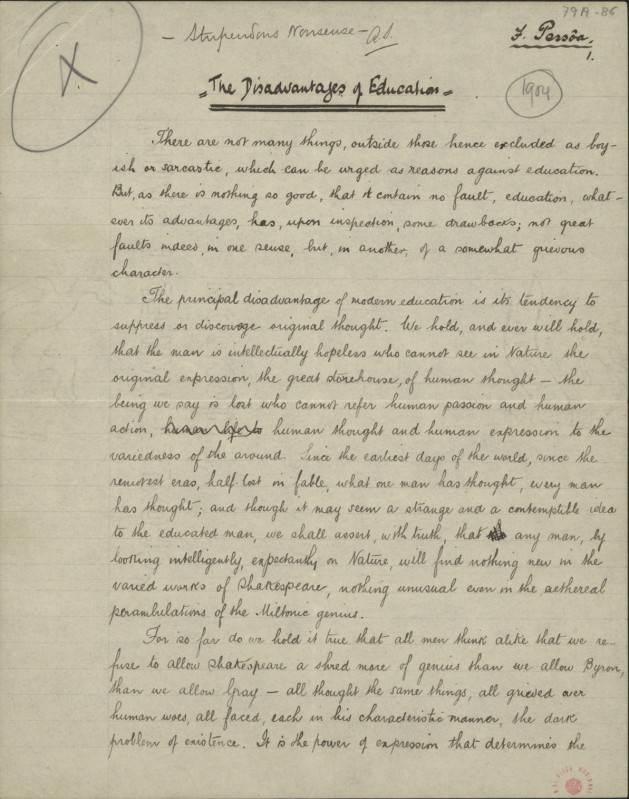 79A-86
- Stupendous Nonsense - A.S.
F. Pessôa.
1.
X
"The Disadvantages of Education"
1904
There are not many things, outside those hence excluded as boy-
ish or sarcastic, which can be urged as reasons against education.
But, as there is nothing so good, that it contain no fault, education, what-
ever its advantages, has, upon inspection, some drawbacks; not great
faults indeed, in one sense, but, in another, of a somewhat grievous
character.
The principal disadvantage of modern education is its tendency to
suppress or discourage original thought. We hold, and ever will hold,
that the man is intellectually hopeless who cannot see in Nature the
original expression, the great storehouse, of human thought — the
being we say is lost who cannot refer human passion and human
action, human thought and human expression to the
variedness of the around. Since the earliest days of the world, since the
remotest eras, half lost in fable, what one man has thought, every man
has thought; and though it may seem a strange and a contemptible idea
to the educated man, we shall assert, with truth, that any man, by
looking intelligently, expectantly on Nature, will find nothing new in the
varied works of Shakespeare, nothing unusual even in the aethereal
perambulations of the Miltonic genius.
For so far do we hold it true that all men think alike that we re-
fuse to allow Shakespeare a shred more of genius than we allow Byron,
than we allow Gray — all thought the same things, all grieved over
human woes, all faced, each in his characteristic manner, the dark
problem of existence. It is the power of expression that determines the